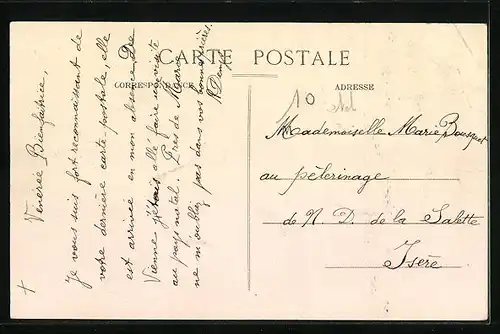 CARTE POSTALE
CORRESPONDANCE
ADRESSE
+
Vénérée Bienfaitrice,
Je vous suis fort reconnaissant de
votre dernière carte postale, elle
est arrivée en mon absence. De
Vienne j'étais allé faire une visite
au pays natal. Près de Marie
ne m'oubliez pas dans vos bonnes prières.
10
Mademoiselle Marie Bousquet
au pèlerinage
de N. D. de la Salette
Isère